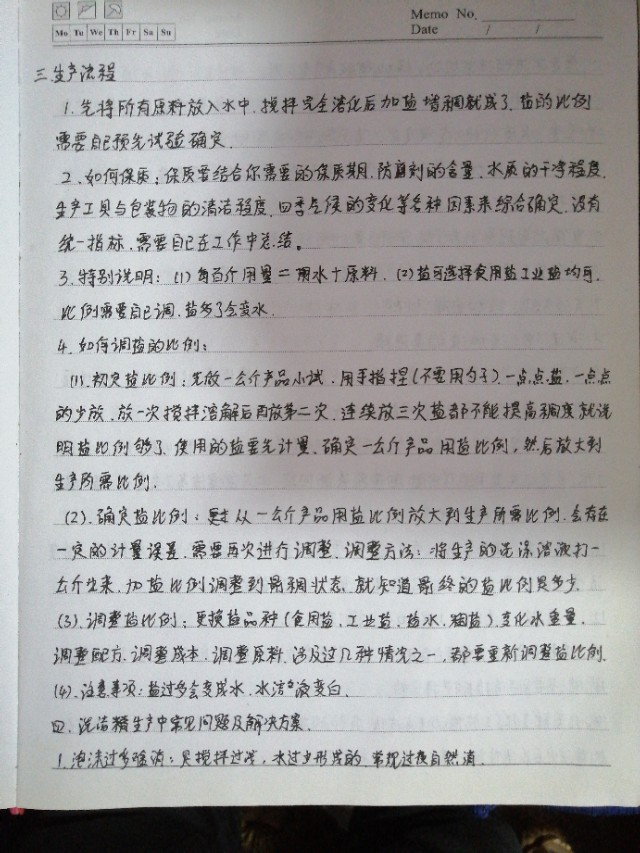 Memo No.
Mo Tu We Th Fr Sa Su
Date / /
三.生产流程
1.先将所有原料放入水中.搅拌完全溶化后加盐增稠就成了.盐的比例
需要自己预先试验确定.
2.如何保质:保质要结合你需要的保质期.防腐剂的含量.水质的干净程度.
生产工具与包装物的清洁程度.四季气候的变化等各种因素来综合确定.没有
统一指标.需要自己在工作中总结。
3.特别说明:(1)每百斤用量=用水+原料.(2)盐可选择食用盐工业盐均可.
比例需要自己调.盐多了会变水.
4.如何调盐的比例:
(1).初定盐比例:先做一公斤产品小试.用手指捏(不要用勺子)一点点盐.一点点
的少放.放一次搅拌溶解后再放第二次.连续放三次盐都不能提高稠度就说
明盐比例够了.使用的盐要先计量.确定一公斤产品用盐比例,然后放大到
生产所需比例.
(2).确定盐比例:从一公斤产品用盐比例放大到生产所需比例.会存在
一定的计量误差.需要再次进行调整.调整方法:将生产的洗涤溶液打一
公斤出来.加盐比例调整到最稠状态.就知道最终的盐比例是多少.
(3).调整盐比例:更换盐品种(食用盐.工业盐.盐水.粗盐).变化水重量.
调整配方.调整成本.调整原料.涉及过几种情况之一,都要重新调整盐比例.
(4).注意事项:盐过多会变成水.水溶液变白.
四.洗洁精生产中常见问题及解决方案.
1.泡沫过多难消:是搅拌过激,水过少形成的.常规过夜自然消.